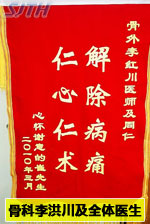 SJTH
骨外李红川医师及同仁
解除病痛
仁心仁术
心怀谢意的崔先生
二〇一〇年三月
骨科李洪川及全体医生